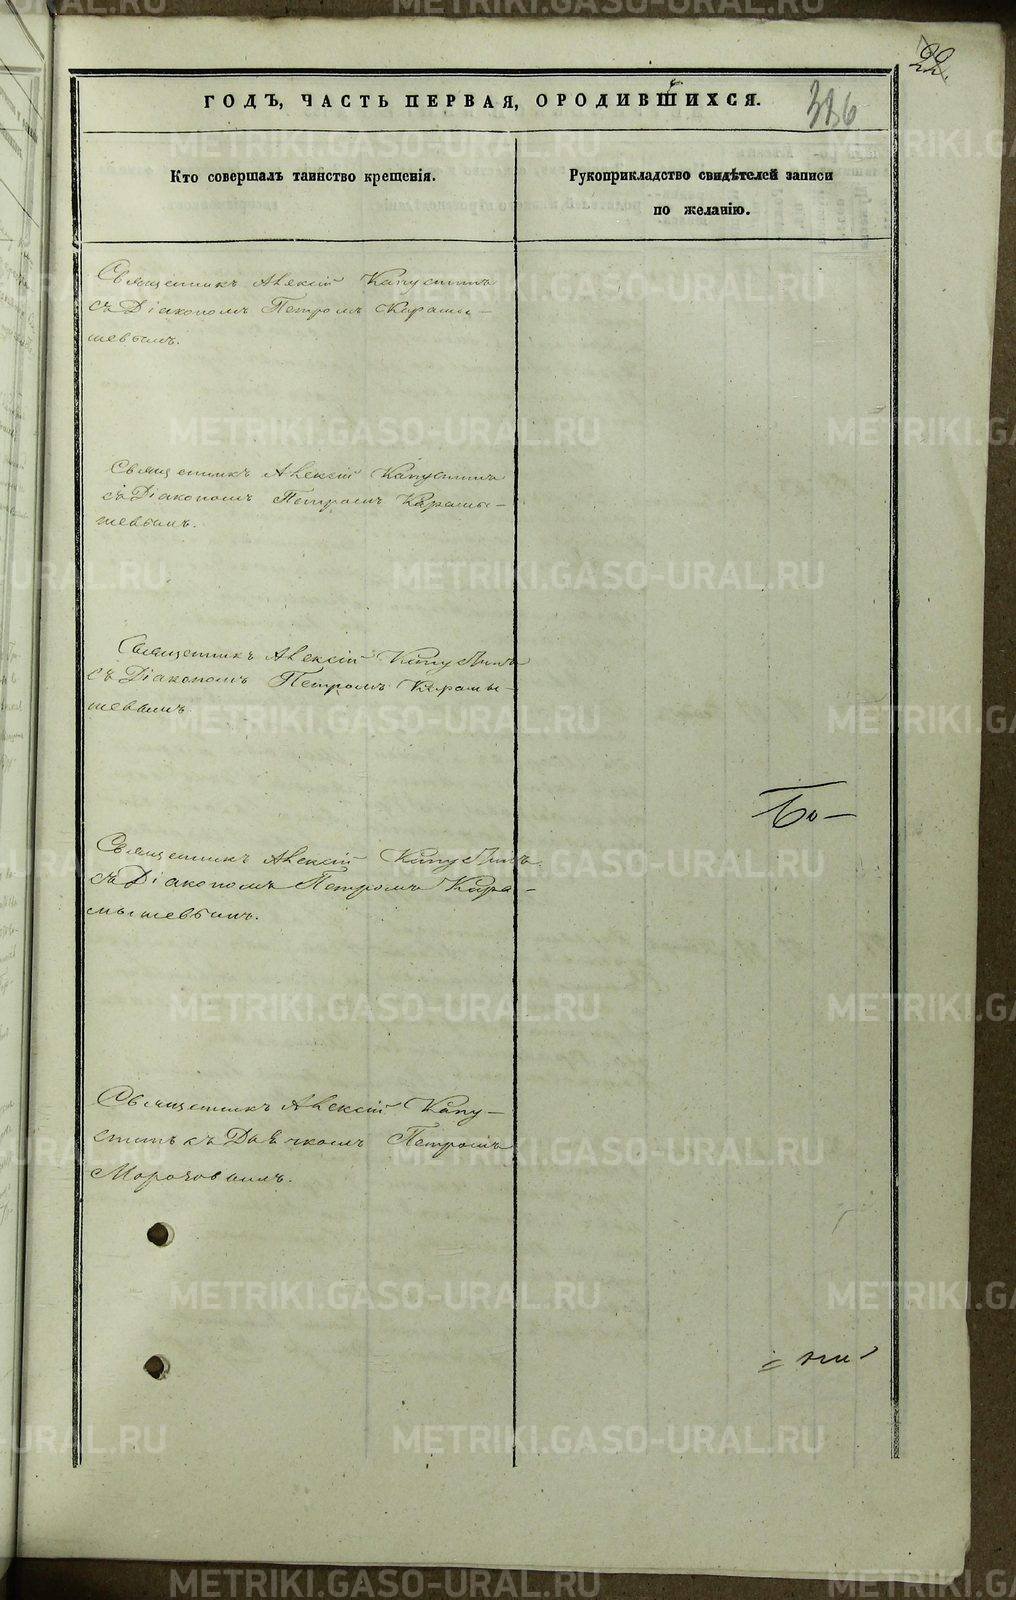 22.
336
ГОДЪ, ЧАСТЬ ПЕРВАЯ, ОРОДИВШИХСЯ.
Кто совершалъ таинство крещенія.
Рукоприкладство свидѣтелей записи
по желанію.
Священникъ Алексій Капустинъ
съ Діакономъ Петромъ Карамы-
шевымъ.
Священникъ Алексій Капустинъ
съ Діакономъ Петромъ Карамы-
шевымъ.
Священникъ Алексій Капустинъ
съ Діакономъ Петромъ Карамы-
шевымъ.
Бо-
Священникъ Алексій Капустинъ
съ Діакономъ Петромъ Кара-
мышевымъ.
Священникъ Алексій Капу-
стинъ съ Дьячкомъ Петромъ
METRIKI.GASO-URAL.RU